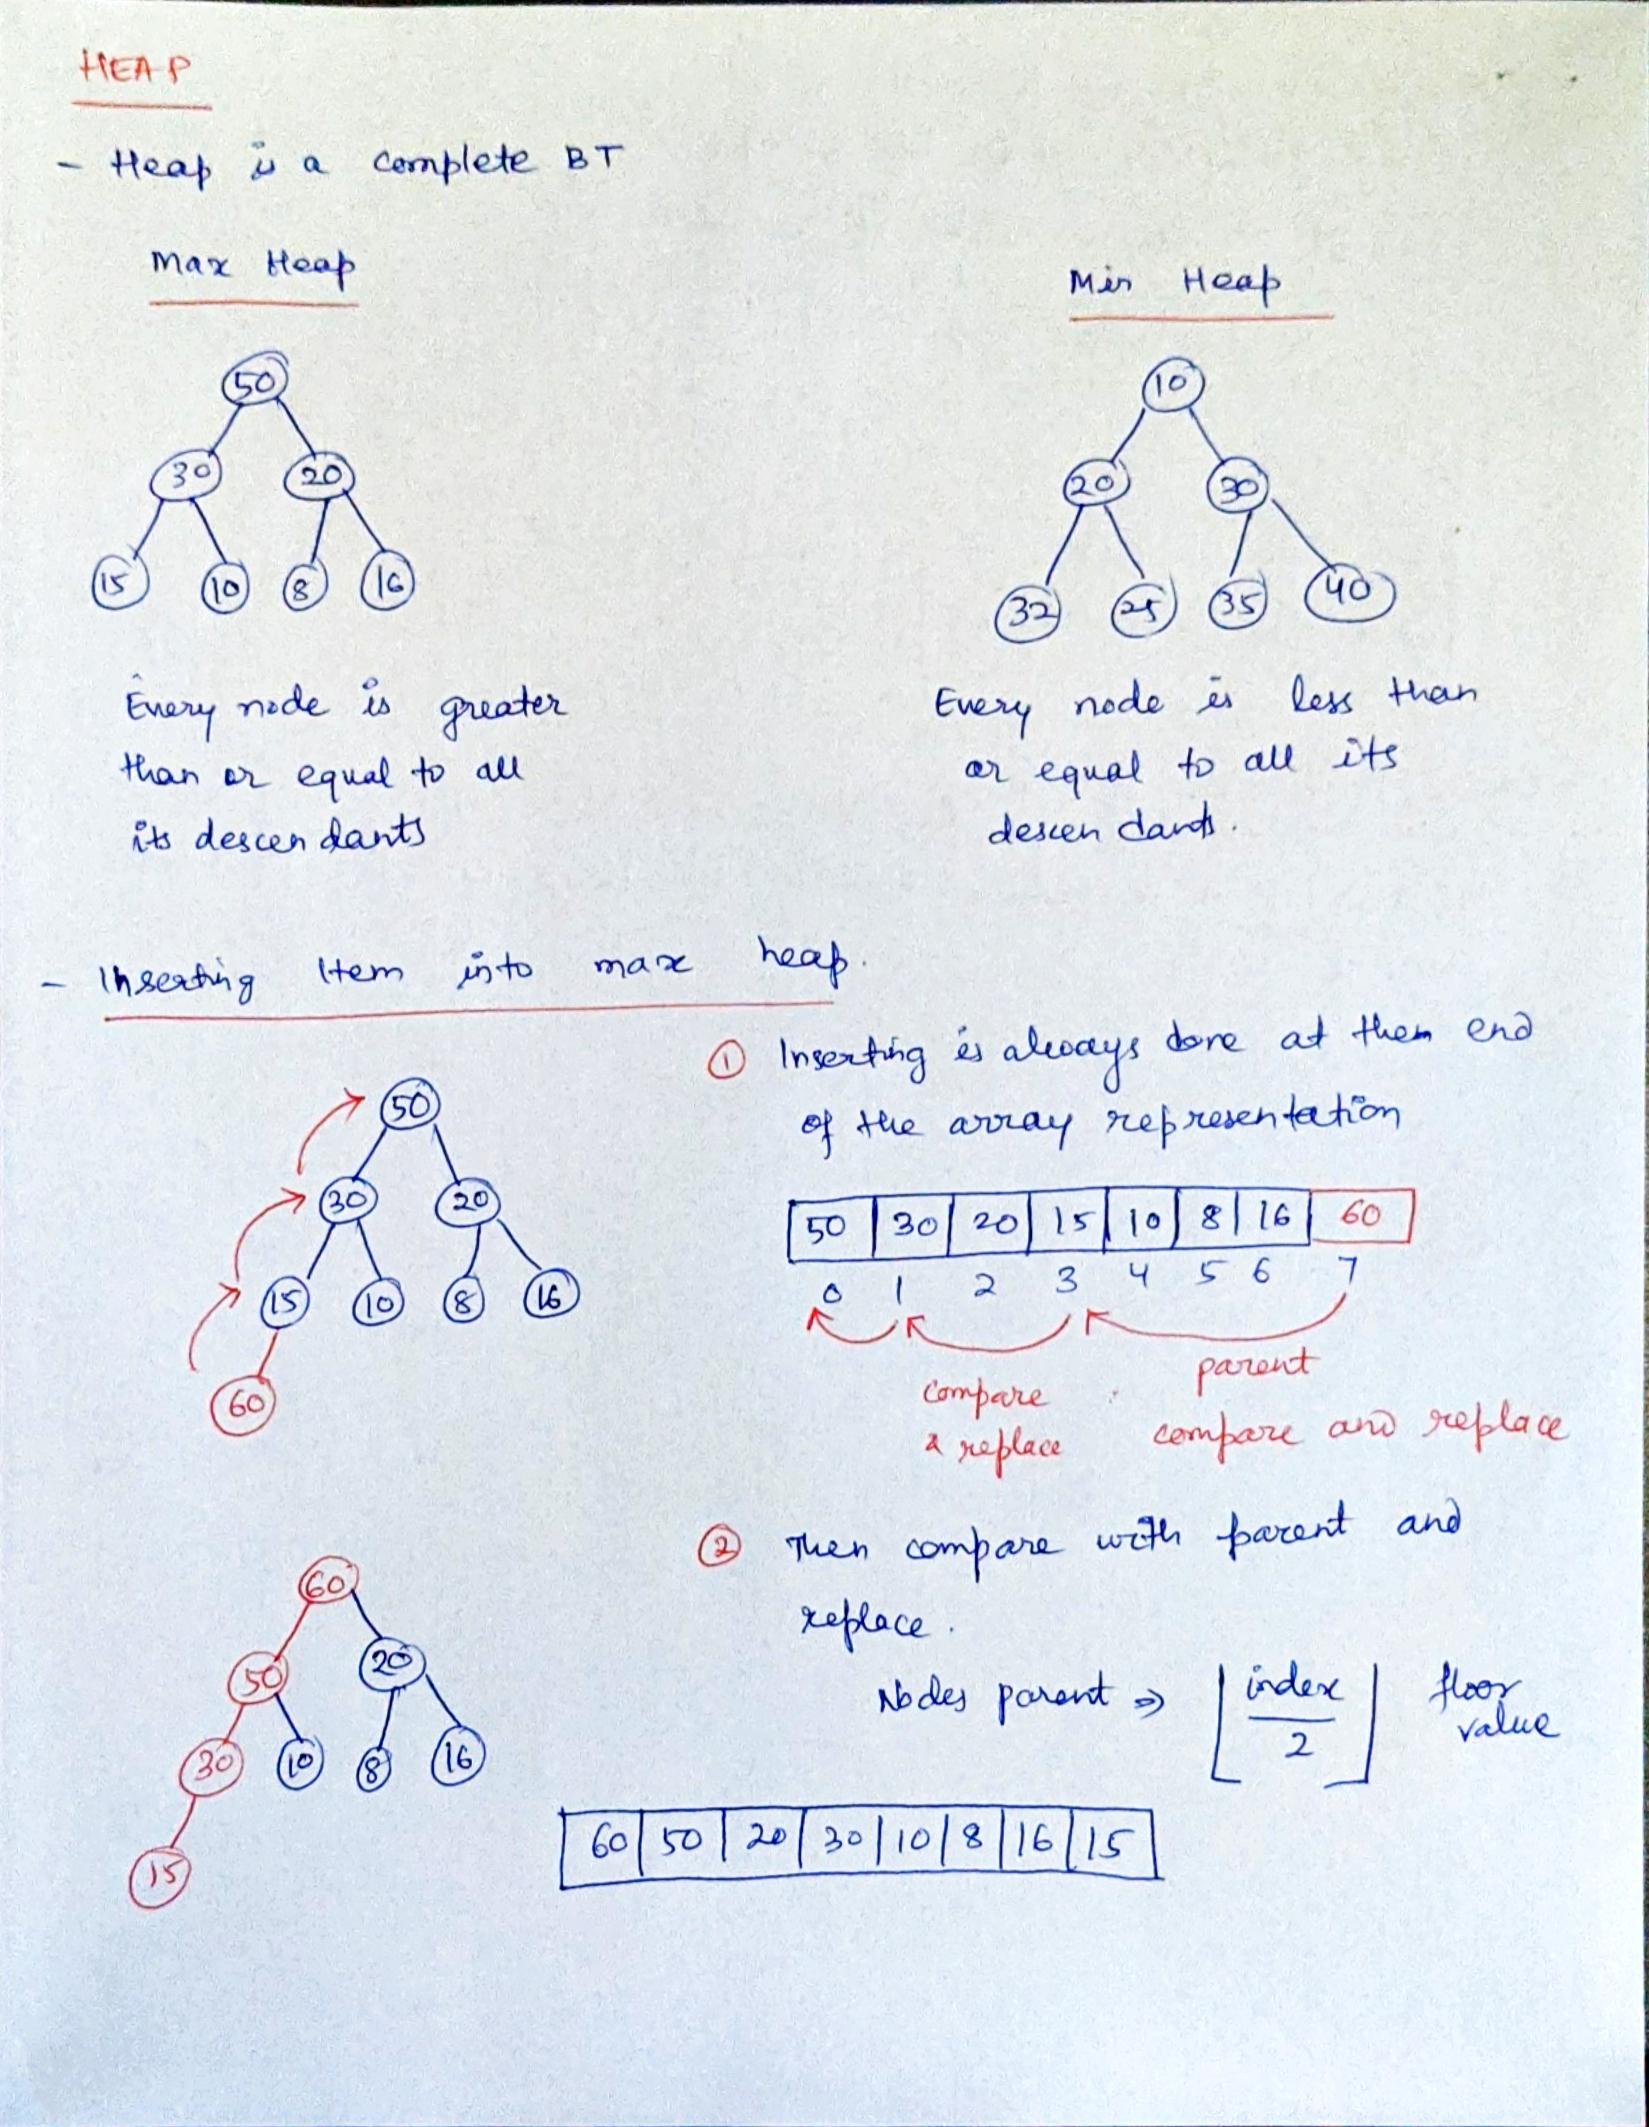 HEAP
- Heap is a complete BT
Max Heap
50
30 20
15 10 8 16
Every node is greater
than or equal to all
its descendants
Min Heap
10
20 30
32 25 35 40
Every node is less than
or equal to all its
descendants.
- Inserting Item into max heap.
50
30 20
15 10 8 16
60
① Inserting is always done at them end
of the array representation
50 30 20 15 10 8 16 60
0 1 2 3 4 5 6 7
parent
compare and replace
compare
& replace
60
50 20
30 10 8 16
15
② Then compare with parent and
replace.
Nodes parent ⇒ ⌊index/2⌋ floor
value
60 50 20 30 10 8 16 15